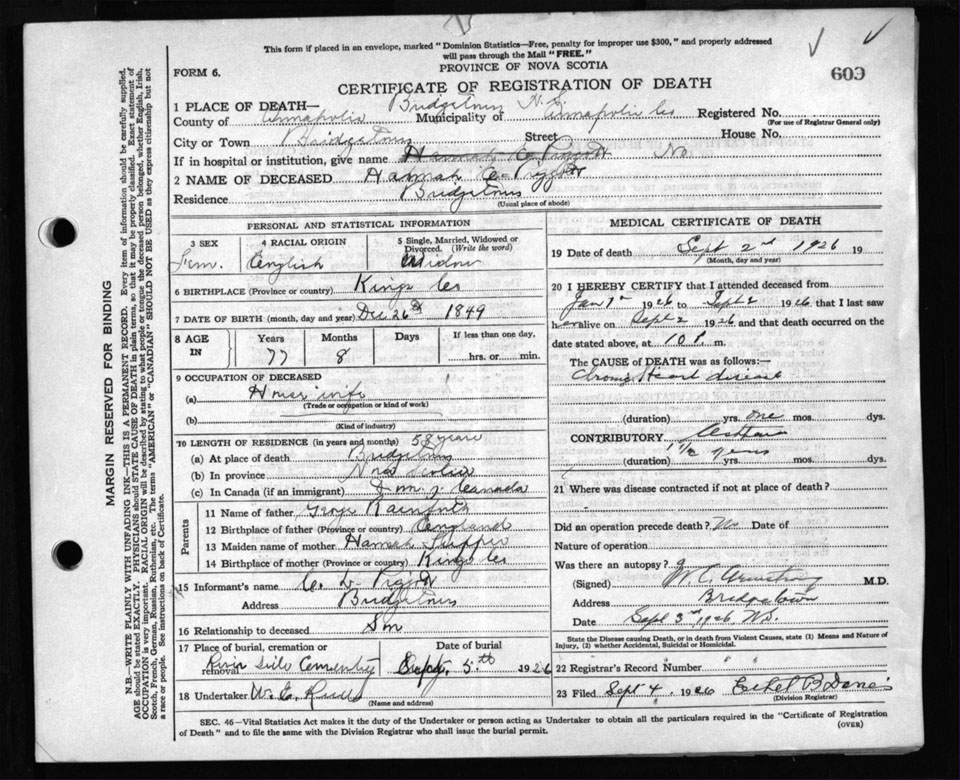 This form if placed in an envelope, marked "Dominion Statistics—Free, penalty for improper use $300," and properly addressed
will pass through the Mail "FREE."
PROVINCE OF NOVA SCOTIA
FORM 6.
603
CERTIFICATE OF REGISTRATION OF DEATH
1 PLACE OF DEATH— Bridgetown N.S.
County of Annapolis Municipality of Annapolis Co Registered No.
(For use of Registrar General only)
City or Town Bridgetown Street House No.
If in hospital or institution, give name No
2 NAME OF DECEASED Hannah C Piggott
Residence Bridgetown
(Usual place of abode)
PERSONAL AND STATISTICAL INFORMATION
3 SEX 4 RACIAL ORIGIN 5 Single, Married, Widowed or
Divorced. (Write the word)
Fem. English Widow
6 BIRTHPLACE (Province or country) Kings Co
7 DATE OF BIRTH (month, day and year) Dec 26th 1849
8 AGE IN Years Months Days If less than one day,
77 8 hrs. or min.
9 OCCUPATION OF DECEASED
(a) House wife
(Trade or occupation or kind of work)
(b)
(Kind of industry)
10 LENGTH OF RESIDENCE (in years and months) 58 years
(a) At place of death Bridgetown
(b) In province Nova Scotia
(c) In Canada (if an immigrant) Canada
Parents
11 Name of father George
12 Birthplace of father (Province or country) England
13 Maiden name of mother Hannah
14 Birthplace of mother (Province or country) Kings Co
15 Informant's name Piggott
Address Bridgetown
16 Relationship to deceased Son
17 Place of burial, cremation or Date of burial
removal River Side Cementry Sept 5th 1926
18 Undertaker W. E.
(Name and address)
MEDICAL CERTIFICATE OF DEATH
19 Date of death Sept 2nd 1926 19
(Month, day and year)
20 I HEREBY CERTIFY that I attended deceased from
Jan 1st 1926 to Sept 2 1926 that I last saw
her alive on Sept 2 1926 and that death occurred on the
date stated above, at 10 P. m.
The CAUSE OF DEATH was as follows:—
Chronic Heart disease
(duration) yrs. one mos. dys.
CONTRIBUTORY Asthma
(duration) 1½ years yrs. mos. dys.
21 Where was disease contracted if not at place of death?
Did an operation precede death? No Date of
Nature of operation
Was there an autopsy?
(Signed) Armstrong M.D.
Address Bridgetown
Date Sept 3rd 1926 N.S.
State the Disease causing Death, or in death from Violent Causes, state (1) Means and Nature of
Injury, (2) whether Accidental, Suicidal or Homicidal.
22 Registrar's Record Number
23 Filed Sept 4 1926 Ethel B
(Division Registrar)
SEC. 46—Vital Statistics Act makes it the duty of the Undertaker or person acting as Undertaker to obtain all the particulars required in the "Certificate of Registration
of Death" and to file the same with the Division Registrar who shall issue the burial permit. (OVER)
MARGIN RESERVED FOR BINDING
N.B.—WRITE PLAINLY WITH UNFADING INK—THIS IS A PERMANENT RECORD. Every item of information should be carefully supplied.
AGE should be stated EXACTLY. PHYSICIANS should STATE CAUSE OF DEATH in plain terms, so that it may be properly classified. Exact statement of
OCCUPATION is very important. RACIAL ORIGIN will be described by stating to what people or tongue the deceased person belonged, whether English, Irish,
Scotch, French, German, Russian, Ruthenian, etc. The terms "AMERICAN" or "CANADIAN" SHOULD NOT BE USED as they express citizenship but not
a race or people. See instructions on back of Certificate.